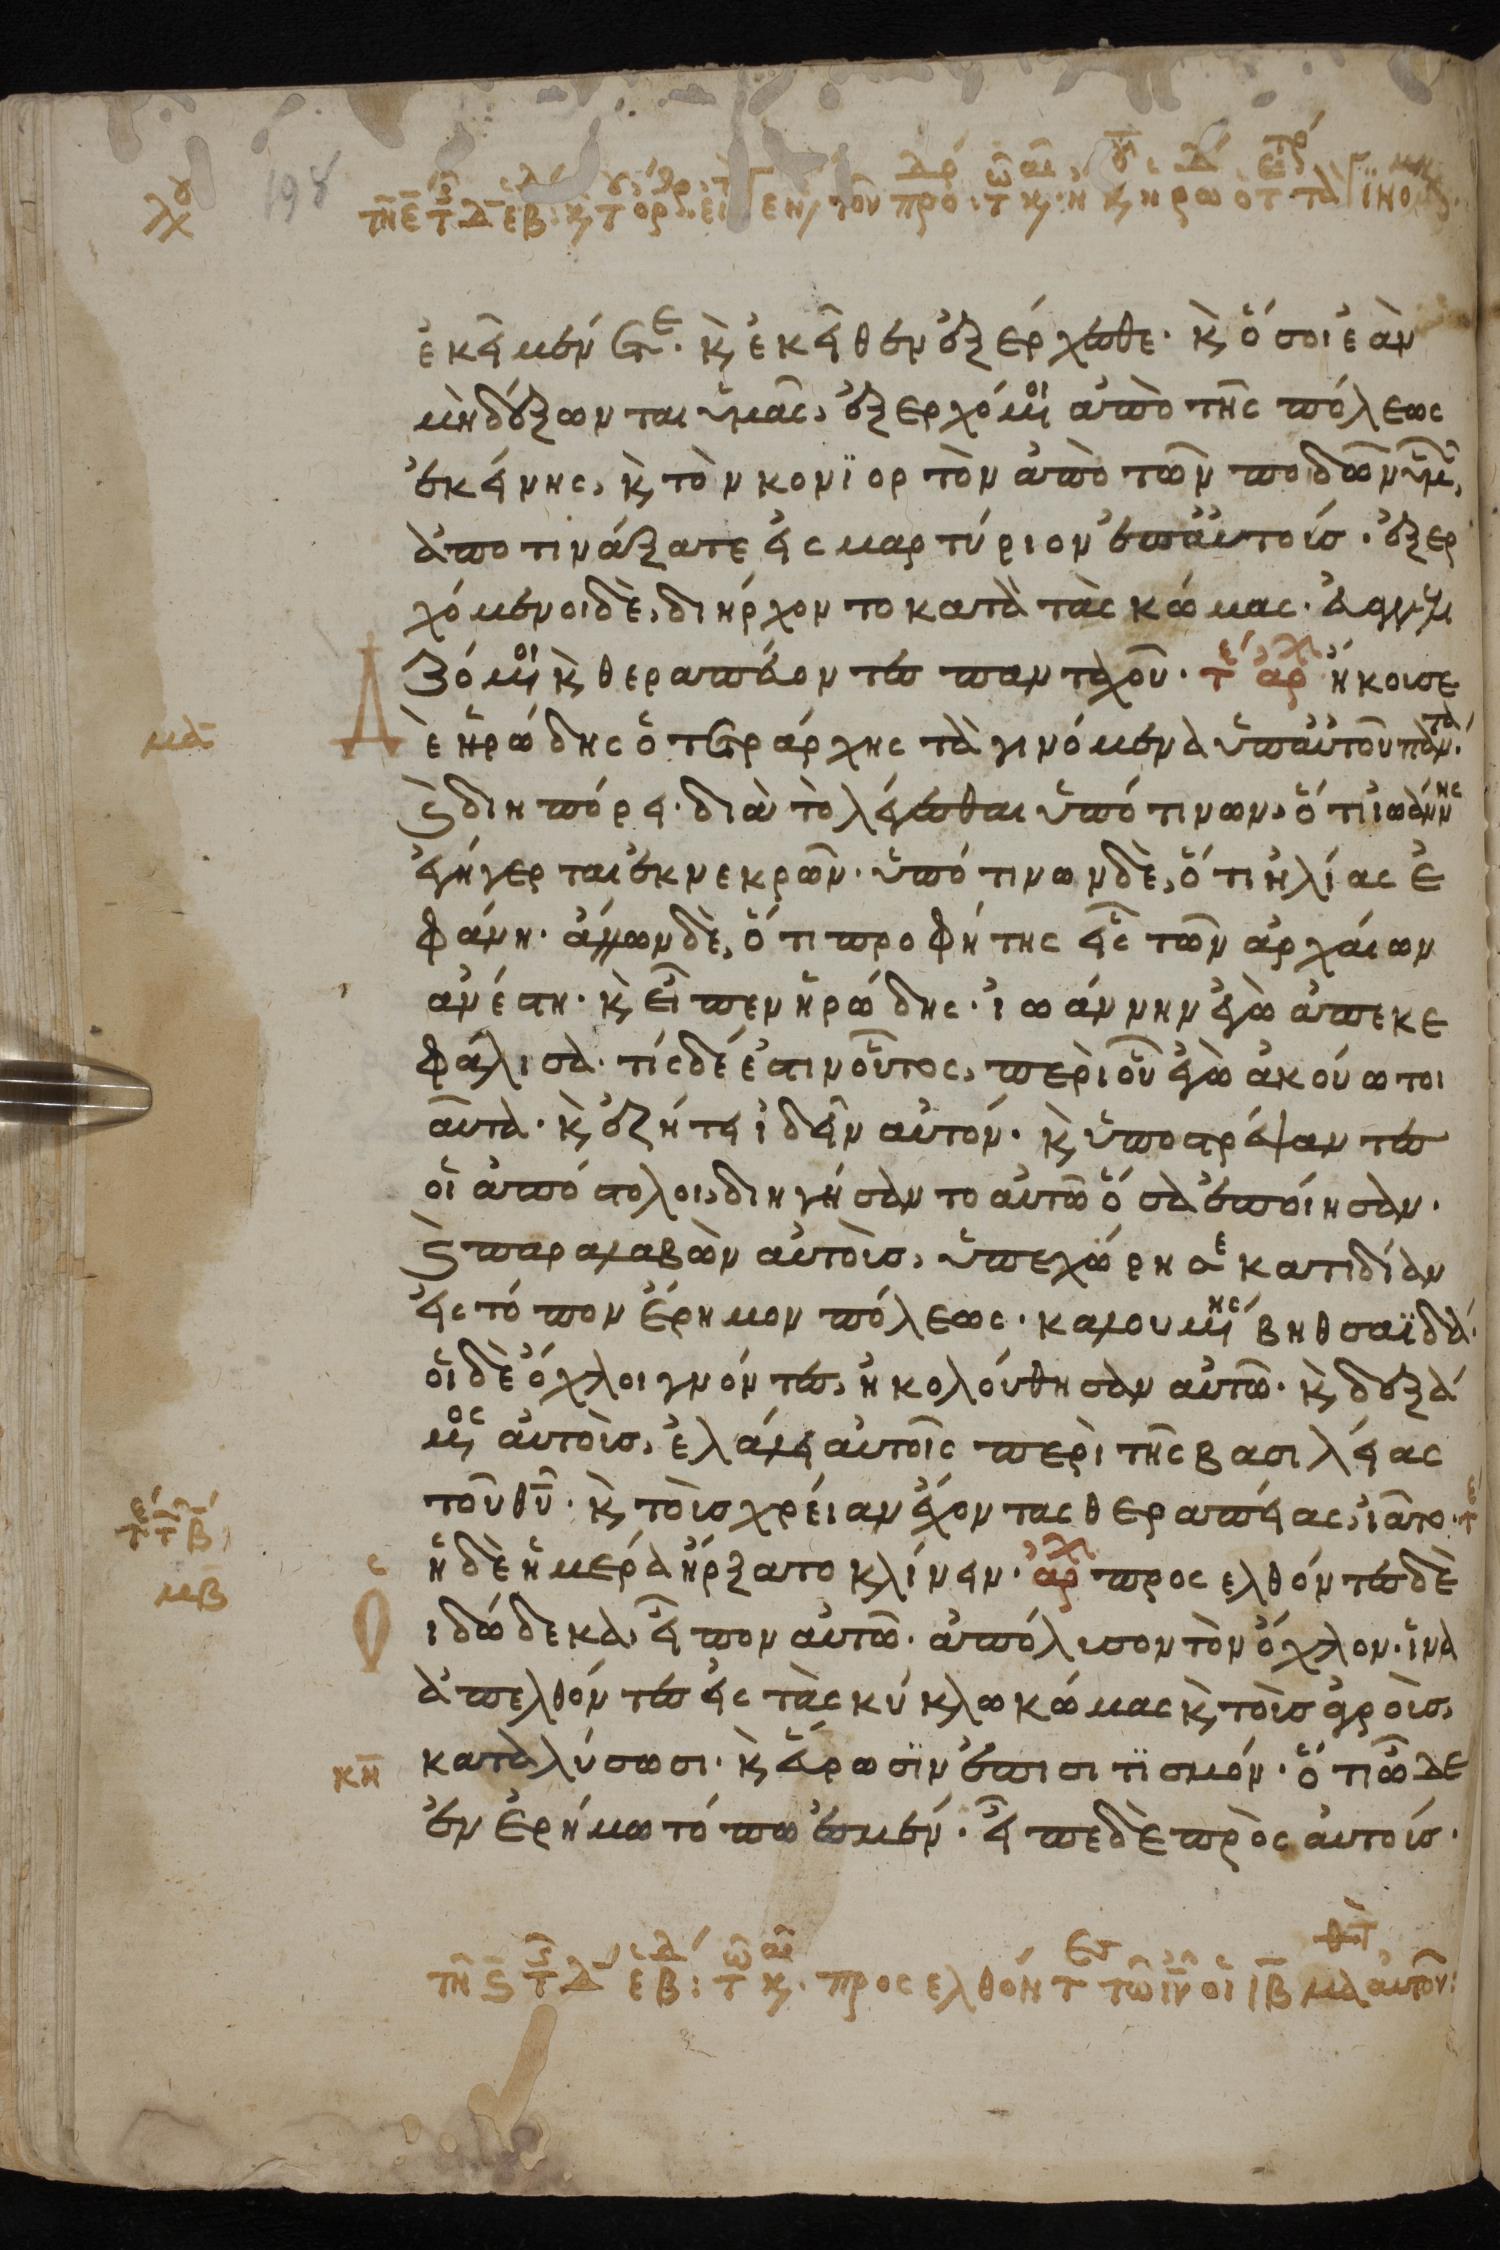 198
ἐκεῖ μένετε· κ, ἐκεῖθεν ἐξέρχεσθε· κ, ὅσοι ἐὰν
μὴ δέξωνται ὑμᾶς, ἐξερχόμενοι ἀπὸ τῆς πόλεως
ἐκείνης, κ, τὸν κονϊορτὸν ἀπὸ τῶν ποδῶν ὑμῶν,
ἀποτινάξατε εἰς μαρτύριον ἐπ αὐτούς· ἐξερ
χόμενοι δὲ, διήρχοντο κατὰ τὰς κώμας· εὐαγγελι
ζόμενοι κ, θεραπεύοντες πανταχοῦ· τε αρχ ἤκουσε
μα Δ ὲ ἡρώδης ὁ τετράρχης τὰ γινόμενα ὑπ αὐτοῦ πάντα·
κ, διηπόρει· διὰ τὸ λέγεσθαι ὑπό τινων, ὅτι ἰωάννης
ἐγήγερται ἐκ νεκρῶν· ὑπό τινων δὲ, ὅτι ἠλίας ἐ
φάνη· ἄλλων δὲ, ὅτι προφήτης εἷς τῶν ἀρχαίων
ἀνέστη· κ, εἶπεν ἡρώδης· ἰωάννην ἐγὼ ἀπεκε
φάλισα· τίς δέ ἐστιν οὗτος, περὶ οὗ ἐγὼ ἀκούω τοι
αῦτα· κ, ἐζήτει ἰδεῖν αὐτόν· κ, ὑποστρέψαντες
οἱ ἀπόστολοι, διηγήσαντο αὐτῶ ὅσα ἐποίησαν·
κ, παραλαβὼν αὐτοὺς, ὑπεχώρησε κατιδίαν
εἰς τόπον ἔρημον πόλεως· καλουμένης βηθσαϊδά·
οἱ δὲ ὄχλοι γνόντες, ἠκολούθησαν αὐτῶ· κ, δεξά
μενος αὐτοὺς, ἐλάλει αὐτοῖς περὶ τῆς βασιλείας
τοῦ θυ· κ, τοὺς χρείαν ἔχοντας θεραπείας, ἰᾶτο· τε
μβ ἡ δὲ ἡμέρα ἤρξατο κλίνειν· αρχ προσελθόντες δὲ
Ο ι δώδεκα, εἶπον αὐτῶ· ἀπόλυσον τὸν ὄχλον· ἵνα
ἀπελθόντες εἰς τὰς κύκλω κώμας κ, τοὺς ἀγροὺς,
κη καταλύσωσι· κ, εὕρωσϊν ἐπισιτϊσμόν· ὅτι ὧδε
ἐν ἐρήμω τόπω ἐσμέν· εἶπε δὲ πρὸς αὐτούς·
προσελθόντ τῶ ιυ οἱ ιβ μα αὐτοῦ: